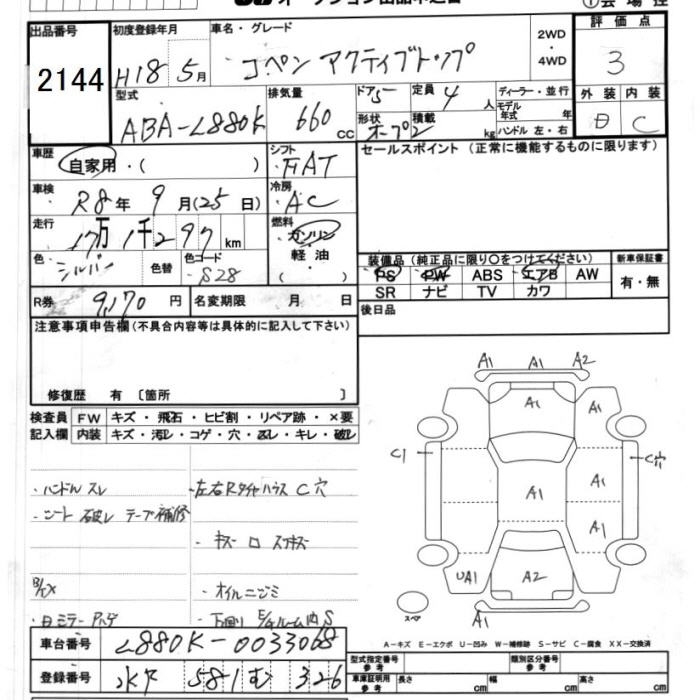 出品番号
2144
初度登録年月
H18年5月
車名・グレード
コペン アクティブトップ
2WD
・
4WD
評価点
3
型式
ABA-L880K
排気量
660 cc
ドア
5
定員
4人
形状
オープン
積載
2 kg
ディーラー・並行
モデル年式 年
ハンドル 左・右
外装
内装
C
車歴
自家用・( )
シフト
FAT
車検
R8年9月(25日)
冷房
AC
走行
17万1千297km
燃料
ガソリン
軽油
( )
色
シルバー
色替
色コード
S28
R券
9,170円
名変期限 月 日
セールスポイント(正常に機能するものに限ります)
装備品(純正品に限り○をつけてください)
新車保証書
PS PW ABS エアB AW
有・無
SR ナビ TV カワ
後日品
注意事項申告欄(不具合内容等は具体的に記入して下さい)
修復歴 有 〔箇所 〕
検査員
記入欄
FW キズ・飛石・ヒビ割・リペア跡・×要
内装 キズ・汚レ・コゲ・穴・スレ・キレ・破レ
・ハンドル スレ
・シート 破レ テープ補修
・左右Rタイヤハウス C穴
・オイルニジミ
A1 A1 A2
A1
A1
C1
C穴
A1
A1
A1
UA1
A2
A1
スペア
車台番号
L880K-0033068
登録番号
水戸 581 む 326
A-キズ E-エクボ U-凹み W-補修跡 S-サビ C-腐食 XX-交換済
型式指定番号
参考
類別区分番号
参考
車庫証明用
参考
長さ cm
幅 cm
高さ cm